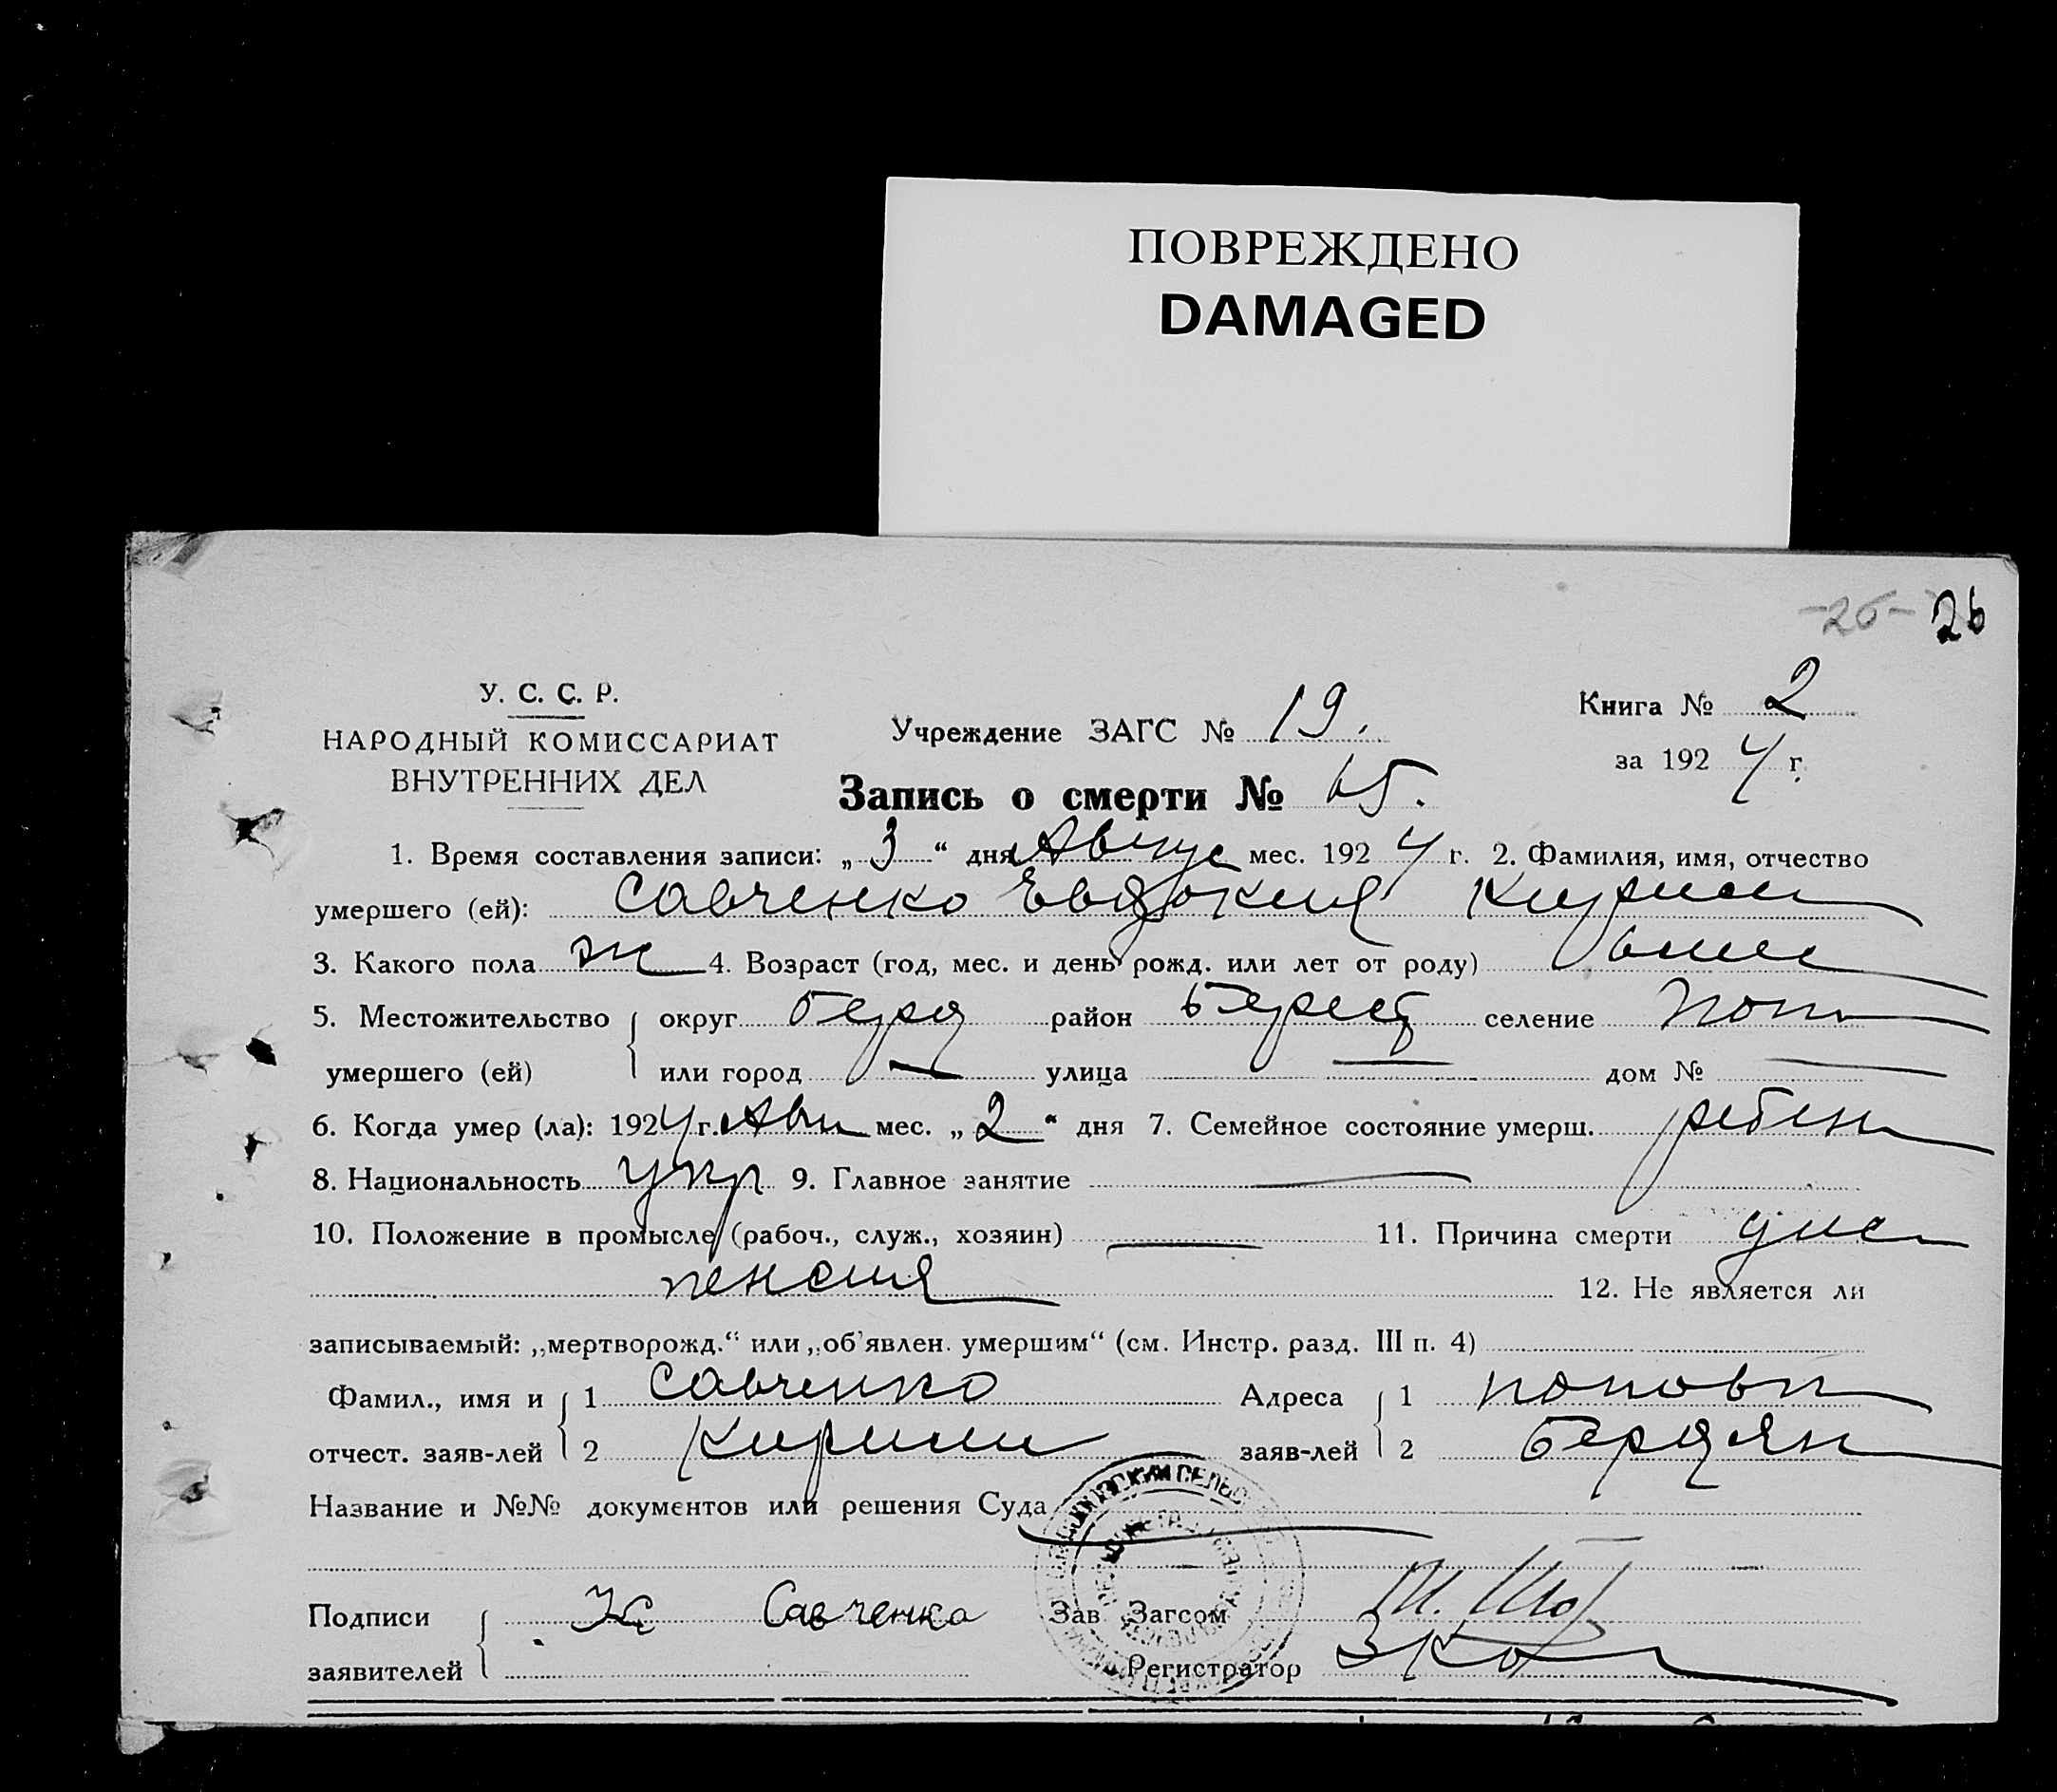 ПОВРЕЖДЕНО
DAMAGED
-26- 26
У. С. С. Р.
НАРОДНЫЙ КОМИССАРИАТ
ВНУТРЕННИХ ДЕЛ
Учреждение ЗАГС № 19.
Книга № 2
за 1924 г.
Запись о смерти №
1. Время составления записи: „ 3 “ дня Авгус мес. 1924 г. 2. Фамилия, имя, отчество
умершего (ей): Савченко Евдокия Кирил
3. Какого пола ж 4. Возраст (год, мес. и день рожд. или лет от роду)
5. Местожительство округ Берд район Берест селение Поп
умершего (ей) или город — улица — дом № —
6. Когда умер (ла): 1924 г. Авг мес. „ 2 “ дня 7. Семейное состояние умерш. ребен
8. Национальность укр 9. Главное занятие —
10. Положение в промысле (рабоч., служ., хозяин) — 11. Причина смерти дис
пенсия 12. Не является ли
записываемый: „мертворожд.“ или „об'явлен. умершим“ (см. Инстр. разд. III п. 4)
Фамил., имя и 1 Савченко Адреса 1 Поповк
отчест. заяв-лей 2 Кирилл заяв-лей 2 Бердян
Название и №№ документов или решения Суда —
Подписи Савченко Зав Загсом
заявителей Регистратор